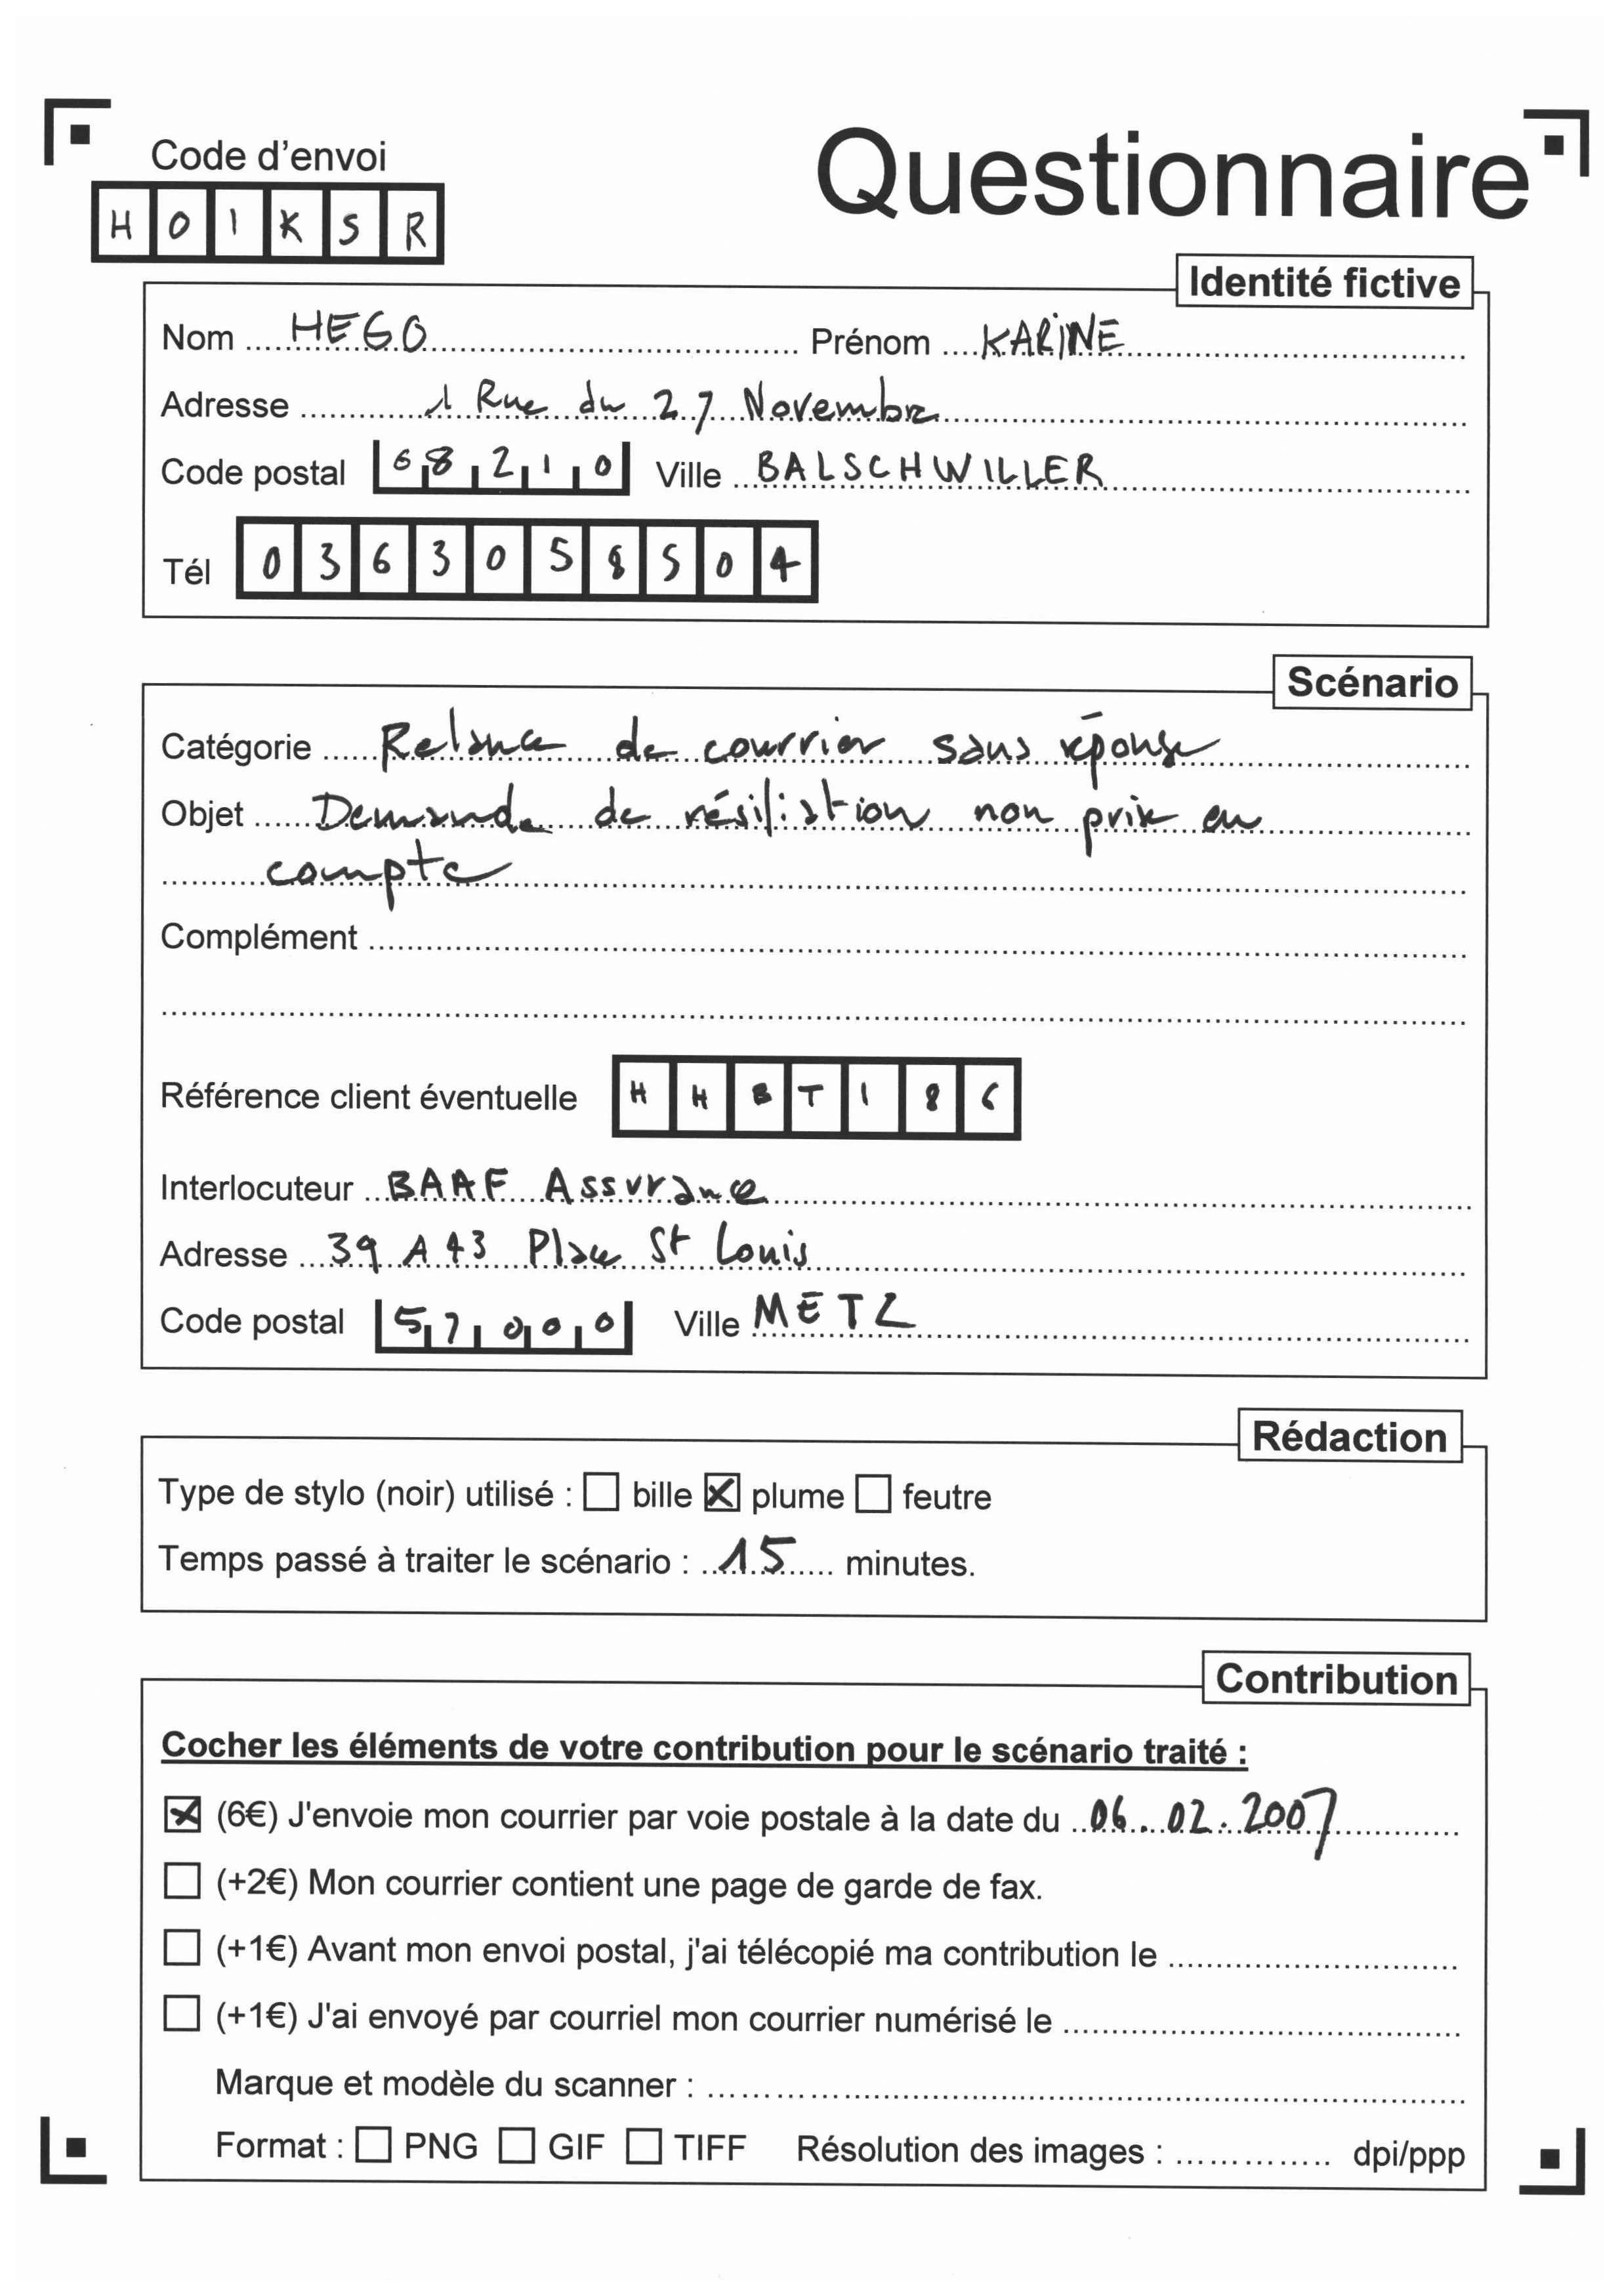 Code d'envoi
Questionnaire
H O I K S R
Identité fictive
Nom HEGO Prénom KARINE
Adresse 1 Rue du 27 Novembre
Code postal 68210 Ville BALSCHWILLER
Tél 0363058504
Scénario
Catégorie Relance de courrier sans réponse
Objet Demande de résiliation non prise en
compte
Complément
Référence client éventuelle HHBT186
Interlocuteur BAAF Assurance
Adresse 39 A 43 Place St Louis
Code postal 57000 Ville METZ
Rédaction
Type de stylo (noir) utilisé : ☐ bille ☒ plume ☐ feutre
Temps passé à traiter le scénario : 15 minutes.
Contribution
Cocher les éléments de votre contribution pour le scénario traité :
☒ (6€) J'envoie mon courrier par voie postale à la date du 06.02.2007
☐ (+2€) Mon courrier contient une page de garde de fax.
☐ (+1€) Avant mon envoi postal, j'ai télécopié ma contribution le
☐ (+1€) J'ai envoyé par courriel mon courrier numérisé le
Marque et modèle du scanner :
Format : ☐ PNG ☐ GIF ☐ TIFF Résolution des images : dpi/ppp